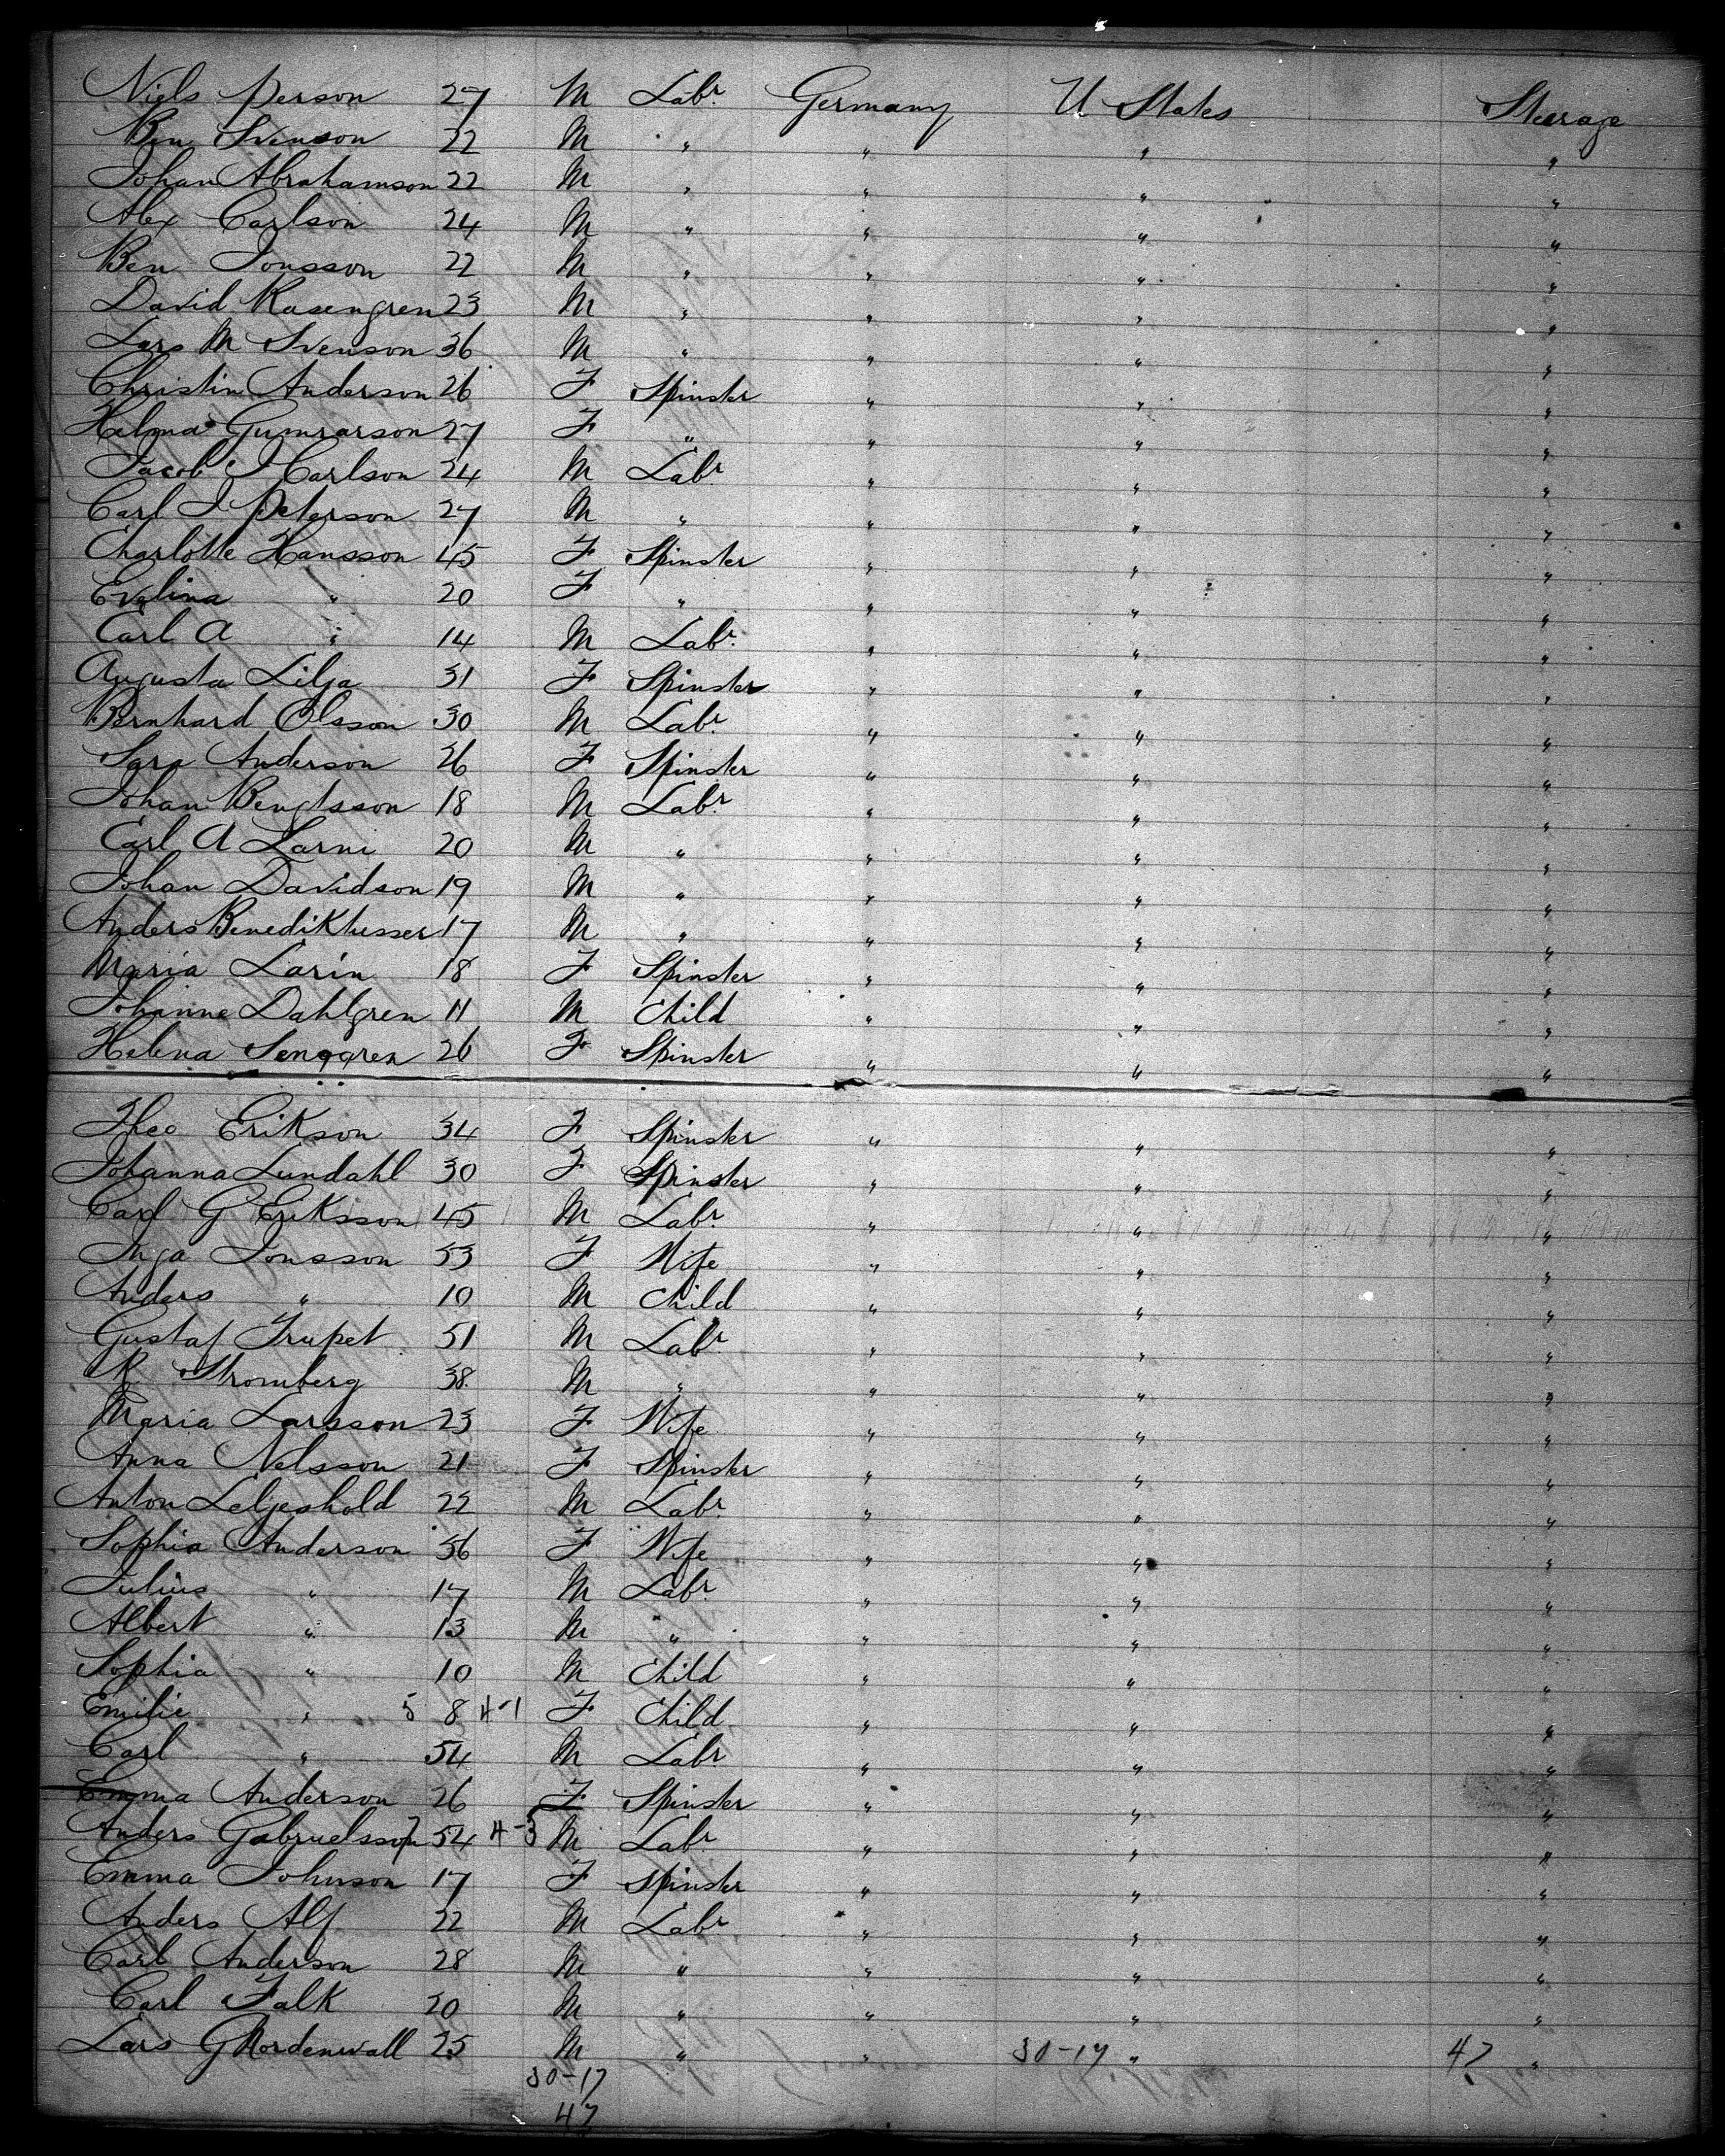 Niels Person 27 M Labr Germany U States Steerage
Ben Svenson 22 M " " " "
Johan Abrahamson 22 M " " " "
Alex Carlson 24 M " " " "
Ben Jonsson 22 M " " " "
David Rasengren 23 M " " " "
Lars M Svenson 36 M " " " "
Christin Anderson 26 F Spinster " " "
Helma Gumrarson 27 F " " " "
Jacob J Carlson 24 M Labr " " "
Carl J Peterson 27 M " " " "
Charlotte Hansson 45 F Spinster " " "
Evelina " 20 F " " " "
Carl A " 14 M Labr " " "
Augusta Lilja 31 F Spinster " " "
Bernhard Olsson 30 M Labr " " "
Sara Anderson 26 F Spinster " " "
Johan Bengtsson 18 M Labr " " "
Carl A Larni 20 M " " " "
Johan Davidson 19 M " " " "
Anders Benedikhusser 17 M " " " "
Maria Larin 18 F Spinster " " "
Johanne Dahlgren 11 M Child " " "
Helena 26 F Spinster " " "
Theo Erikson 34 F Spinster " " "
Johanna Lundahl 30 F Spinster " " "
Carl G Eriksson 45 M Labr " " "
Inga Jonsson 53 F Wife " " "
Anders " 10 M Child " " "
Gustaf Trupet 51 M Labr " " "
R Stromberg 38 M " " " "
Maria Larsson 23 F Wife " " "
Anna Nelsson 21 F Spinster " " "
Anton Leljeshold 22 M Labr " " "
Sophia Anderson 56 F Wife " " "
Julius " 17 M Labr " " "
Albert " 13 M " " " "
Sophia " 10 M Child " " "
Emilie " 5 8 4-1 F Child " " "
Carl " 54 M Labr " " "
Emma Anderson 26 F Spinster " " "
Anders Gabruelsson 7 54 4-3 M Labr " " "
Emma Johnson 17 F Spinster " " "
Anders Alf 22 M Labr " " "
Carl Anderson 28 M " " " "
Carl Falk 20 M " " " "
Lars G Nordenwall 25 M " " 30-17 " 47 "
30-17
47